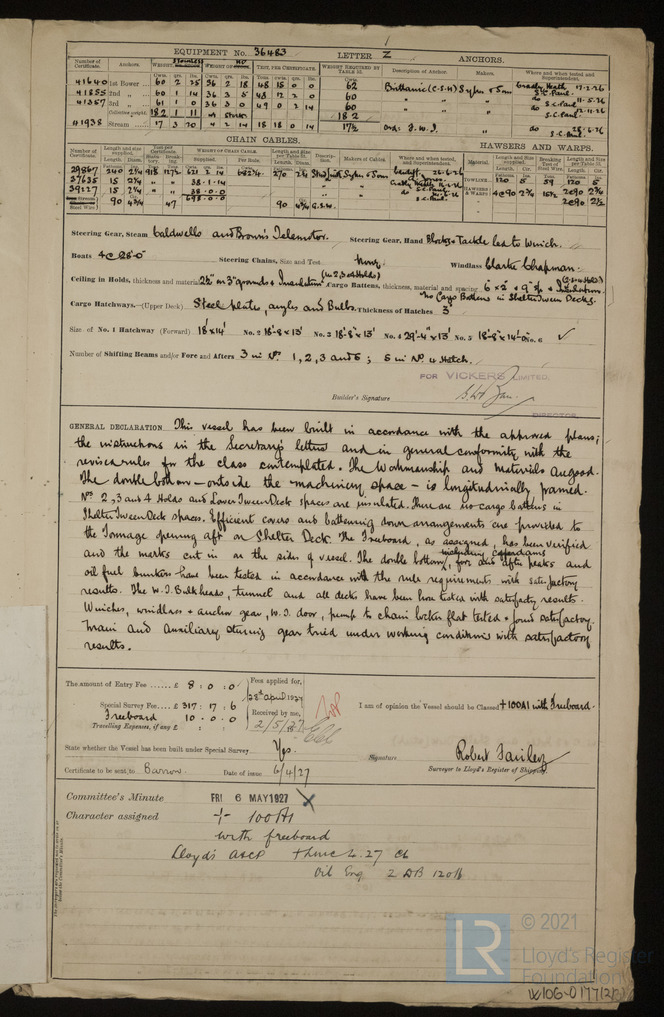 EQUIPMENT No. 36483 LETTER Z ANCHORS.
Number of Certificate. Anchors. WEIGHT, Stockless WEIGHT, TEST, PER CERTIFICATE. WEIGHT REQUIRED BY TABLE 22. Description of Anchor. Makers. Where and when tested and Superintendent.
Cwts. qrs. lbs. Cwts. qrs. lbs.
41640 1st Bower 60 2 25 36 2 18 48 15 0 0 62 Brittanic (C.S.H) Sykes & Son Cradley Heath 17.2.26 S.C. Paul.
41855 2nd 60 1 14 36 3 5 48 12 2 0 60 do 11.5.26 S.C. Paul
41357 3rd 61 1 0 36 3 0 49 0 2 14 60 do S.C. Paul.
Collective weight 182 1 11 182
41938 Stream 17 3 20 4 2 14 18 18 0 14 17½ Ord: do S.C. Paul
CHAIN CABLES. HAWSERS AND WARPS.
Number of Certificate. Length and size supplied. Test per Certificate. WEIGHT OF CHAIN CABLE. Length and size per Table 22. Description. Makers of Cables. Where and when tested, and Superintendent. Material. Length and Size supplied. Breaking Test of Steel Wire. Length and Size per Table 22.
Length. Diam. Supplied. Per Rule. Length. Diam.
29867 240 2¼ 621 2 14 682¾ 270 2¼ Stud Link Sykes & Son TOWLINE 120 5 59 120 5
37635 15 2¼ 38.1.14 Cradley Heath HAWSERS & WARPS 4@90 2¾ 15½ 2@90 2¾
39127 15 2¼ 38.0.0 S.C. Paul. 2@90 2½
Steel Wire 90 47 90 G.S.W.
Steering Gear, Steam Caldwells and Brown's Telemotor. Steering Gear, Hand Blocks & Tackle led to Winch.
Boats 4@28'0" Steering Chains, Size and Test None Windlass Clarke Chapman.
Ceiling in Holds, thickness and material 2½" on 3" grounds & Insulation (in 2,3&4 Holds) Cargo Battens, thickness, material and spacing 6 x 2 & 9" sp & Insulation (2-3-4 Holds)
No Cargo Battens in Shelter Tween Decks.
Cargo Hatchways.—(Upper Deck) Steel plates, angles and Bulbs. Thickness of Hatches 3"
Size of No. 1 Hatchway (Forward) 18'x14' No. 2 18'-8x13' No. 3 18'-8"x13' No. 4 29'-4"x13' No. 5 18'-8"x14'-0" No. 6 ✓
Number of Shifting Beams and/or Fore and Afters 3 in Nos. 1, 2, 3 and 5; 5 in No. 4 Hatch.
FOR VICKERS LIMITED.
Builder's Signature
DIRECTOR.
GENERAL DECLARATION This vessel has been built in accordance with the approved plans;
the instructions in the Secretary's letters and in general conformity with the
revised rules for the class contemplated. The Workmanship and materials are good.
The double bottom — outside the machinery space — is longitudinally framed.
Nos 2, 3 and 4 Holds and Lower Tween Deck spaces are insulated. There are no cargo battens in
Shelter Tween Deck spaces. Efficient covers and battening down arrangements are provided to
the Tonnage opening aft on Shelter Deck. The Freeboard, as assigned, has been verified
and the marks cut in on the sides of vessel. The double bottom, including cofferdams, fore and after peaks and
oil fuel bunkers have been tested in accordance with the rule requirements with satisfactory
results. The W.T. Bulkheads, tunnel and all decks have been hose tested with satisfactory results.
Winches, windlass & anchor gear, W.T. door, pump to chain locker flat tested & found satisfactory.
Main and Auxiliary steering gear tried under working conditions with satisfactory
results.
The amount of Entry Fee £ 8 : 0 : 0 Fees applied for,
28th April 1927
Special Survey Fee £ 317 : 17 : 6 Received by me, I am of opinion the Vessel should be Classed +100A1 with Freeboard.
Freeboard 10 . 0 . 0
Travelling Expenses, if any £ : : 2/5/27
State whether the Vessel has been built under Special Survey Yes. Signature Robert Fairley
Certificate to be sent to Barrow. Date of issue 6/4/27 Surveyor to Lloyd's Register of Shipping.
Committee's Minute FRI 6 MAY 1927
Character assigned + 100A1
with freeboard
Lloyd's A&CP + LMC 4.27 CL
Oil Eng 2 DB 120lb
© 2021
LR
Lloyd's Register
Foundation